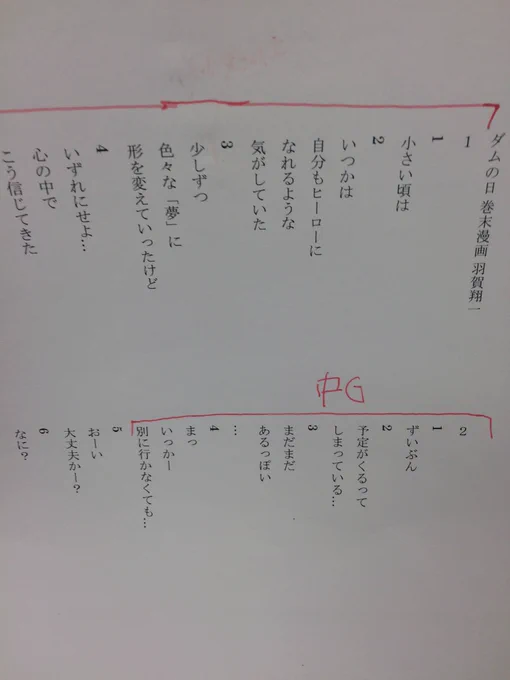 ダムの日 巻末漫画 羽賀翔一
1
1
小さい頃は
2
いつかは
自分もヒーローに
なれるような
気がしていた
3
少しずつ
色々な「夢」に
形を変えていったけど
4
いずれにせよ…
心の中で
こう信じてきた
中G
2
1
ずいぶん
2
予定がくるって
しまっている…
3
まだまだ
あるっぽい
…
4
まっ
いっかー
別に行かなくても…
5
おーい
大丈夫かー?
6
なに?